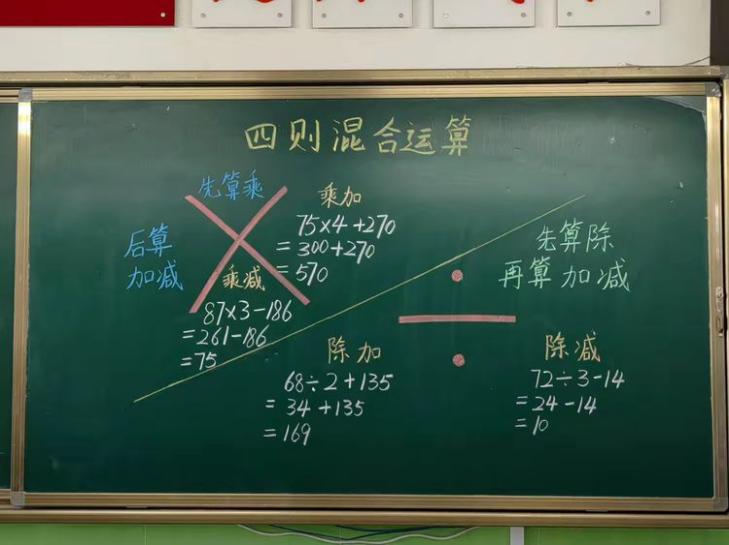 四则混合运算
先算乘
后算
加减
乘加
75×4+270
=300+270
=570
乘减
87×3-186
=261-186
=75
先算除
再算加减
除加
68÷2+135
=34+135
=169
除减
72÷3-14
=24-14
=10